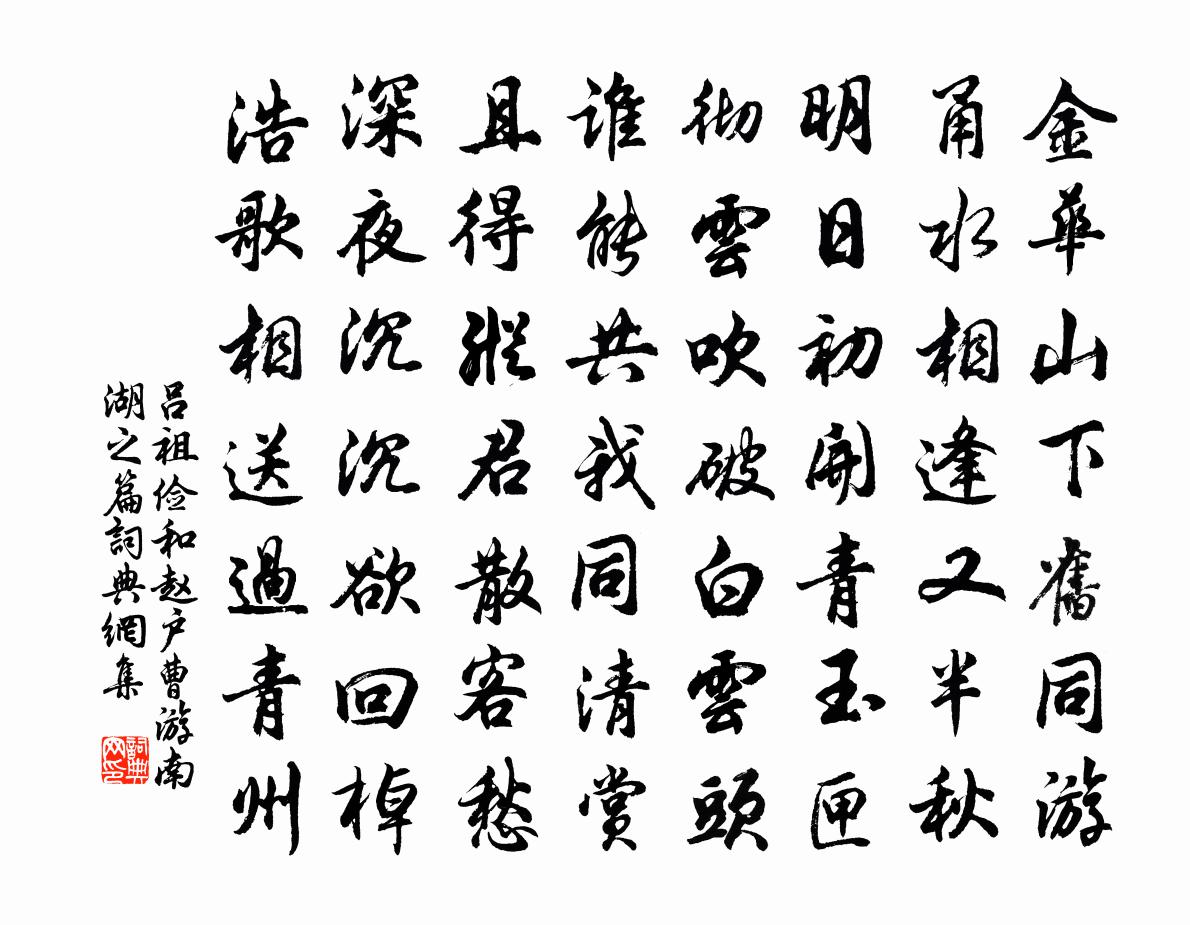 金華山下舊同游
甬水相逢又半秋
明日初開青玉匣
彻雲吹破白雲頭
谁能共我同清赏
且得縱君散客愁
深夜沉沉欲回棹
浩歌相送過青州
吕祖俭和赵户曹游南
湖之篇詞典網集
詞典网印